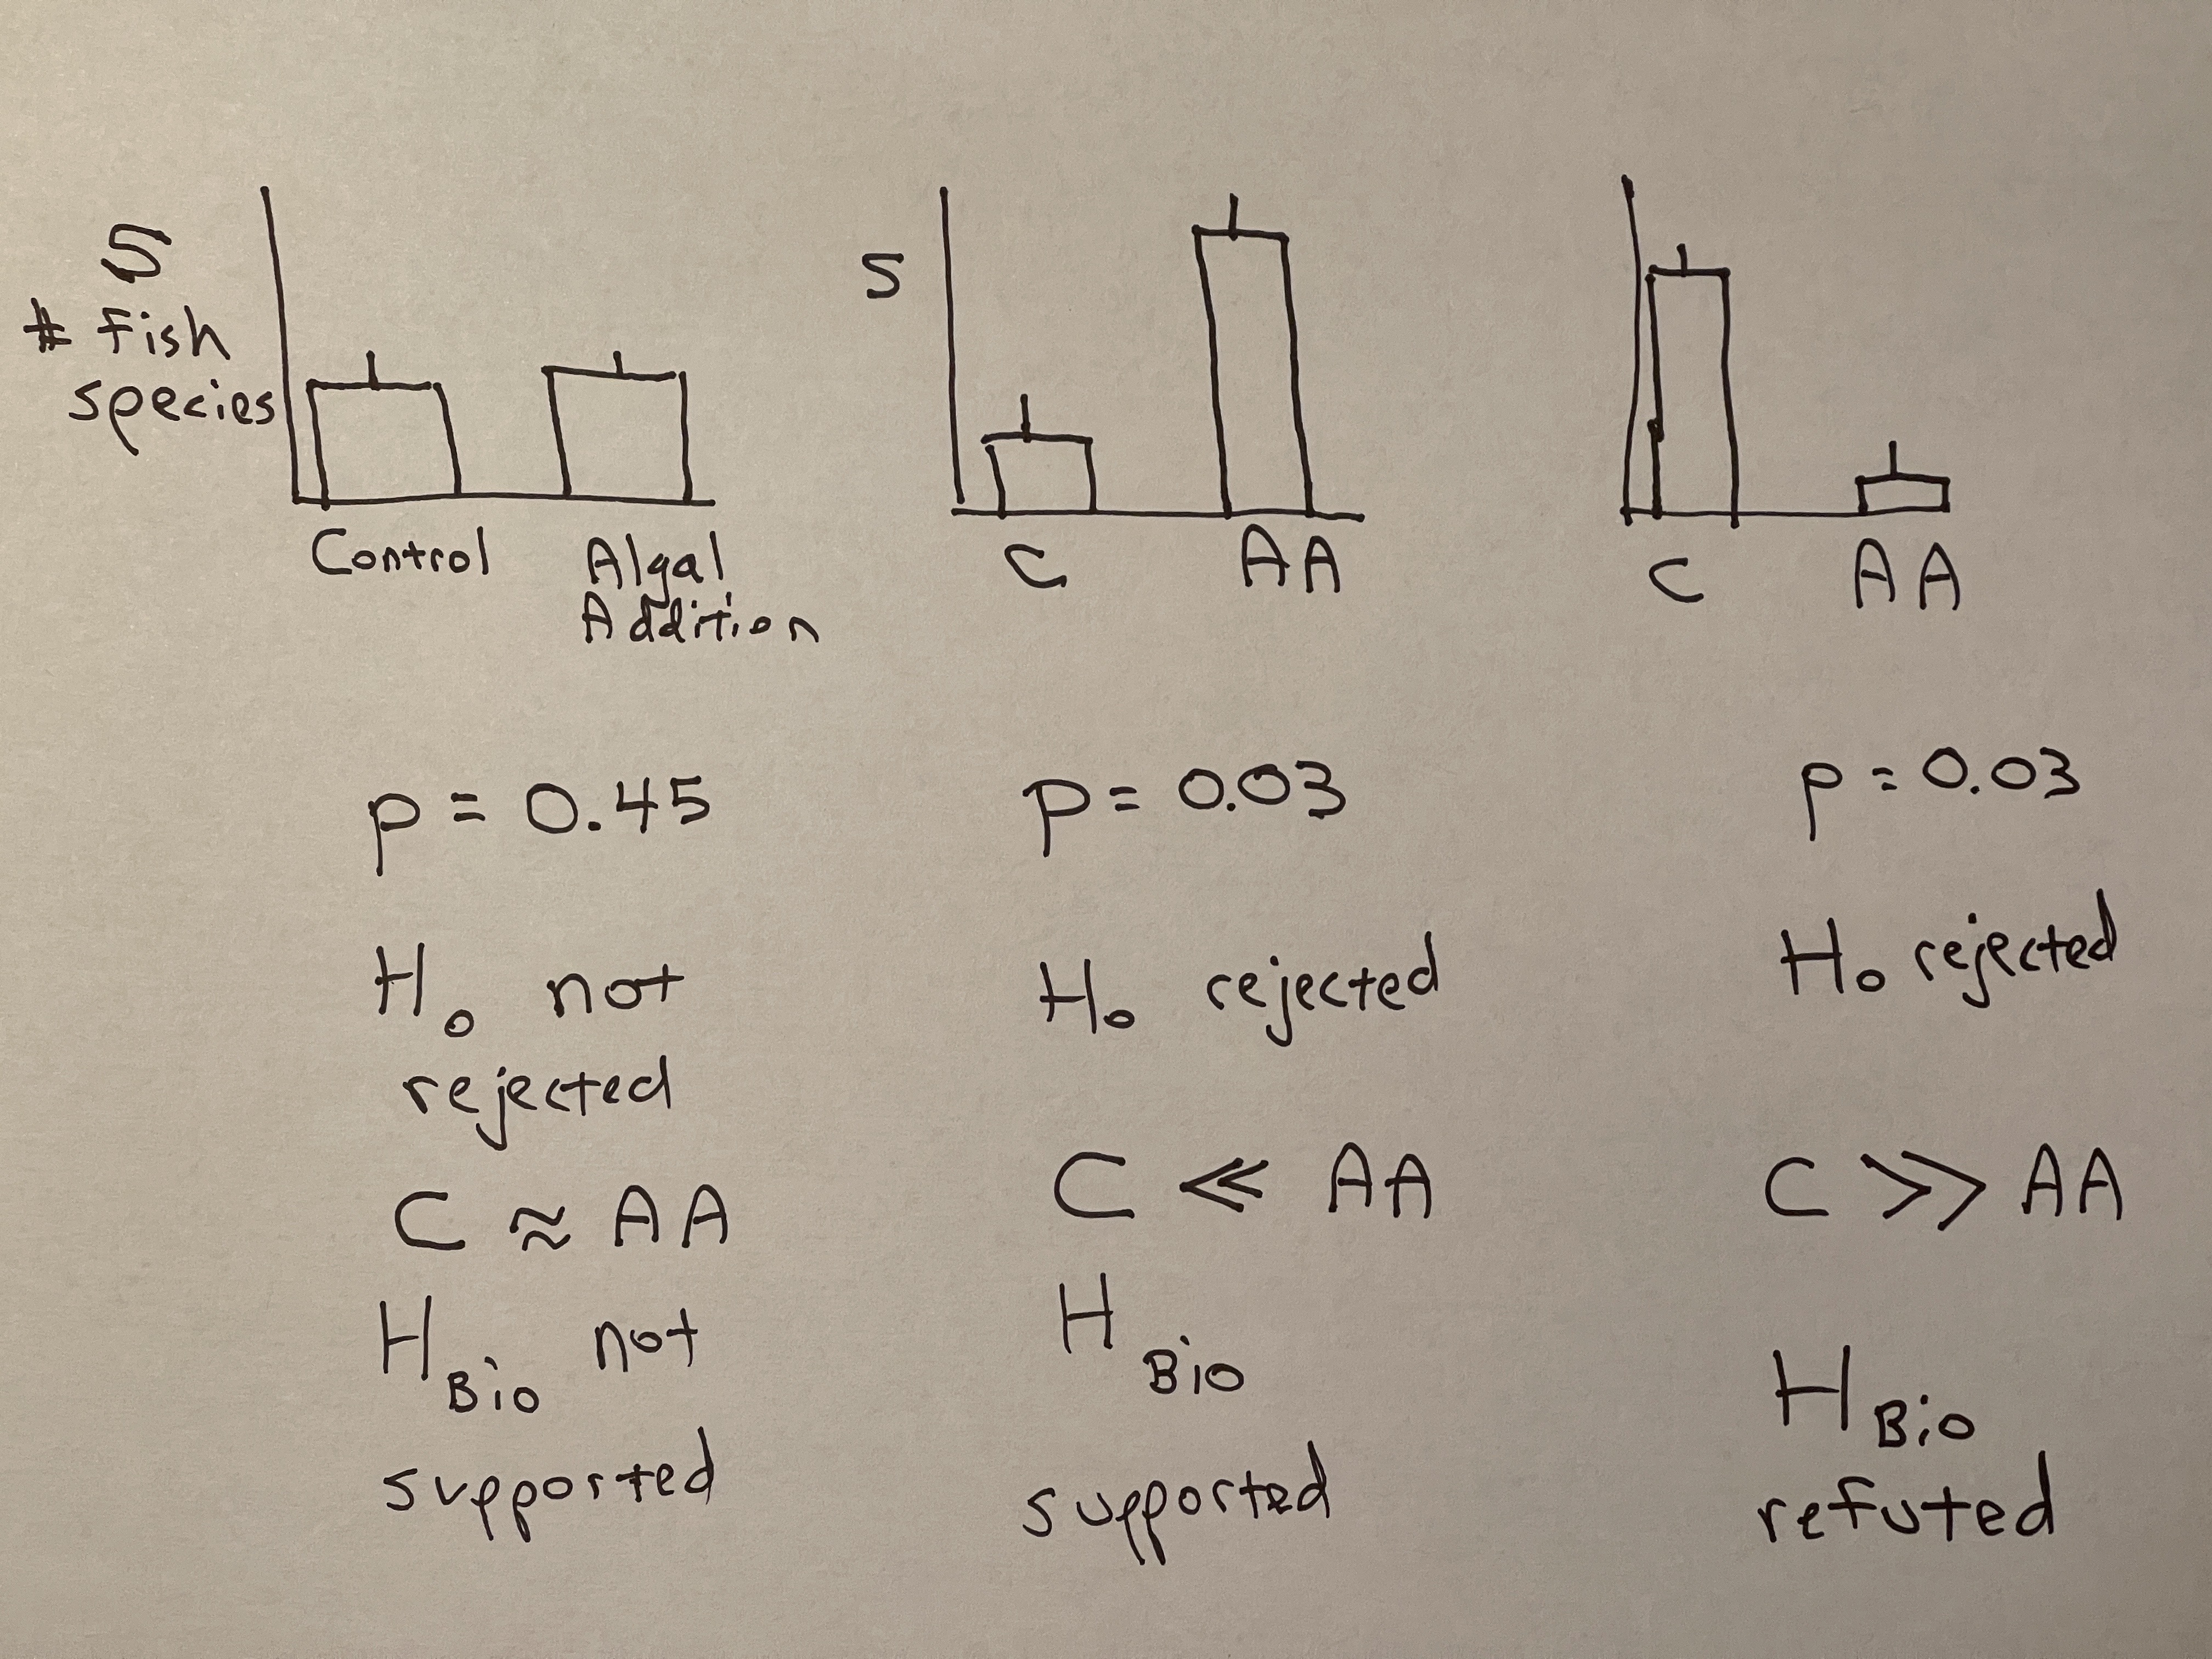 S
# fish
species
Control
Algal
Addition
p = 0.45
H₀ not
rejected
C ≈ AA
H Bio not
supported
S
C
AA
p = 0.03
H₀ rejected
C << AA
H Bio
supported
C
AA
p = 0.03
H₀ rejected
C >> AA
H Bio
refuted